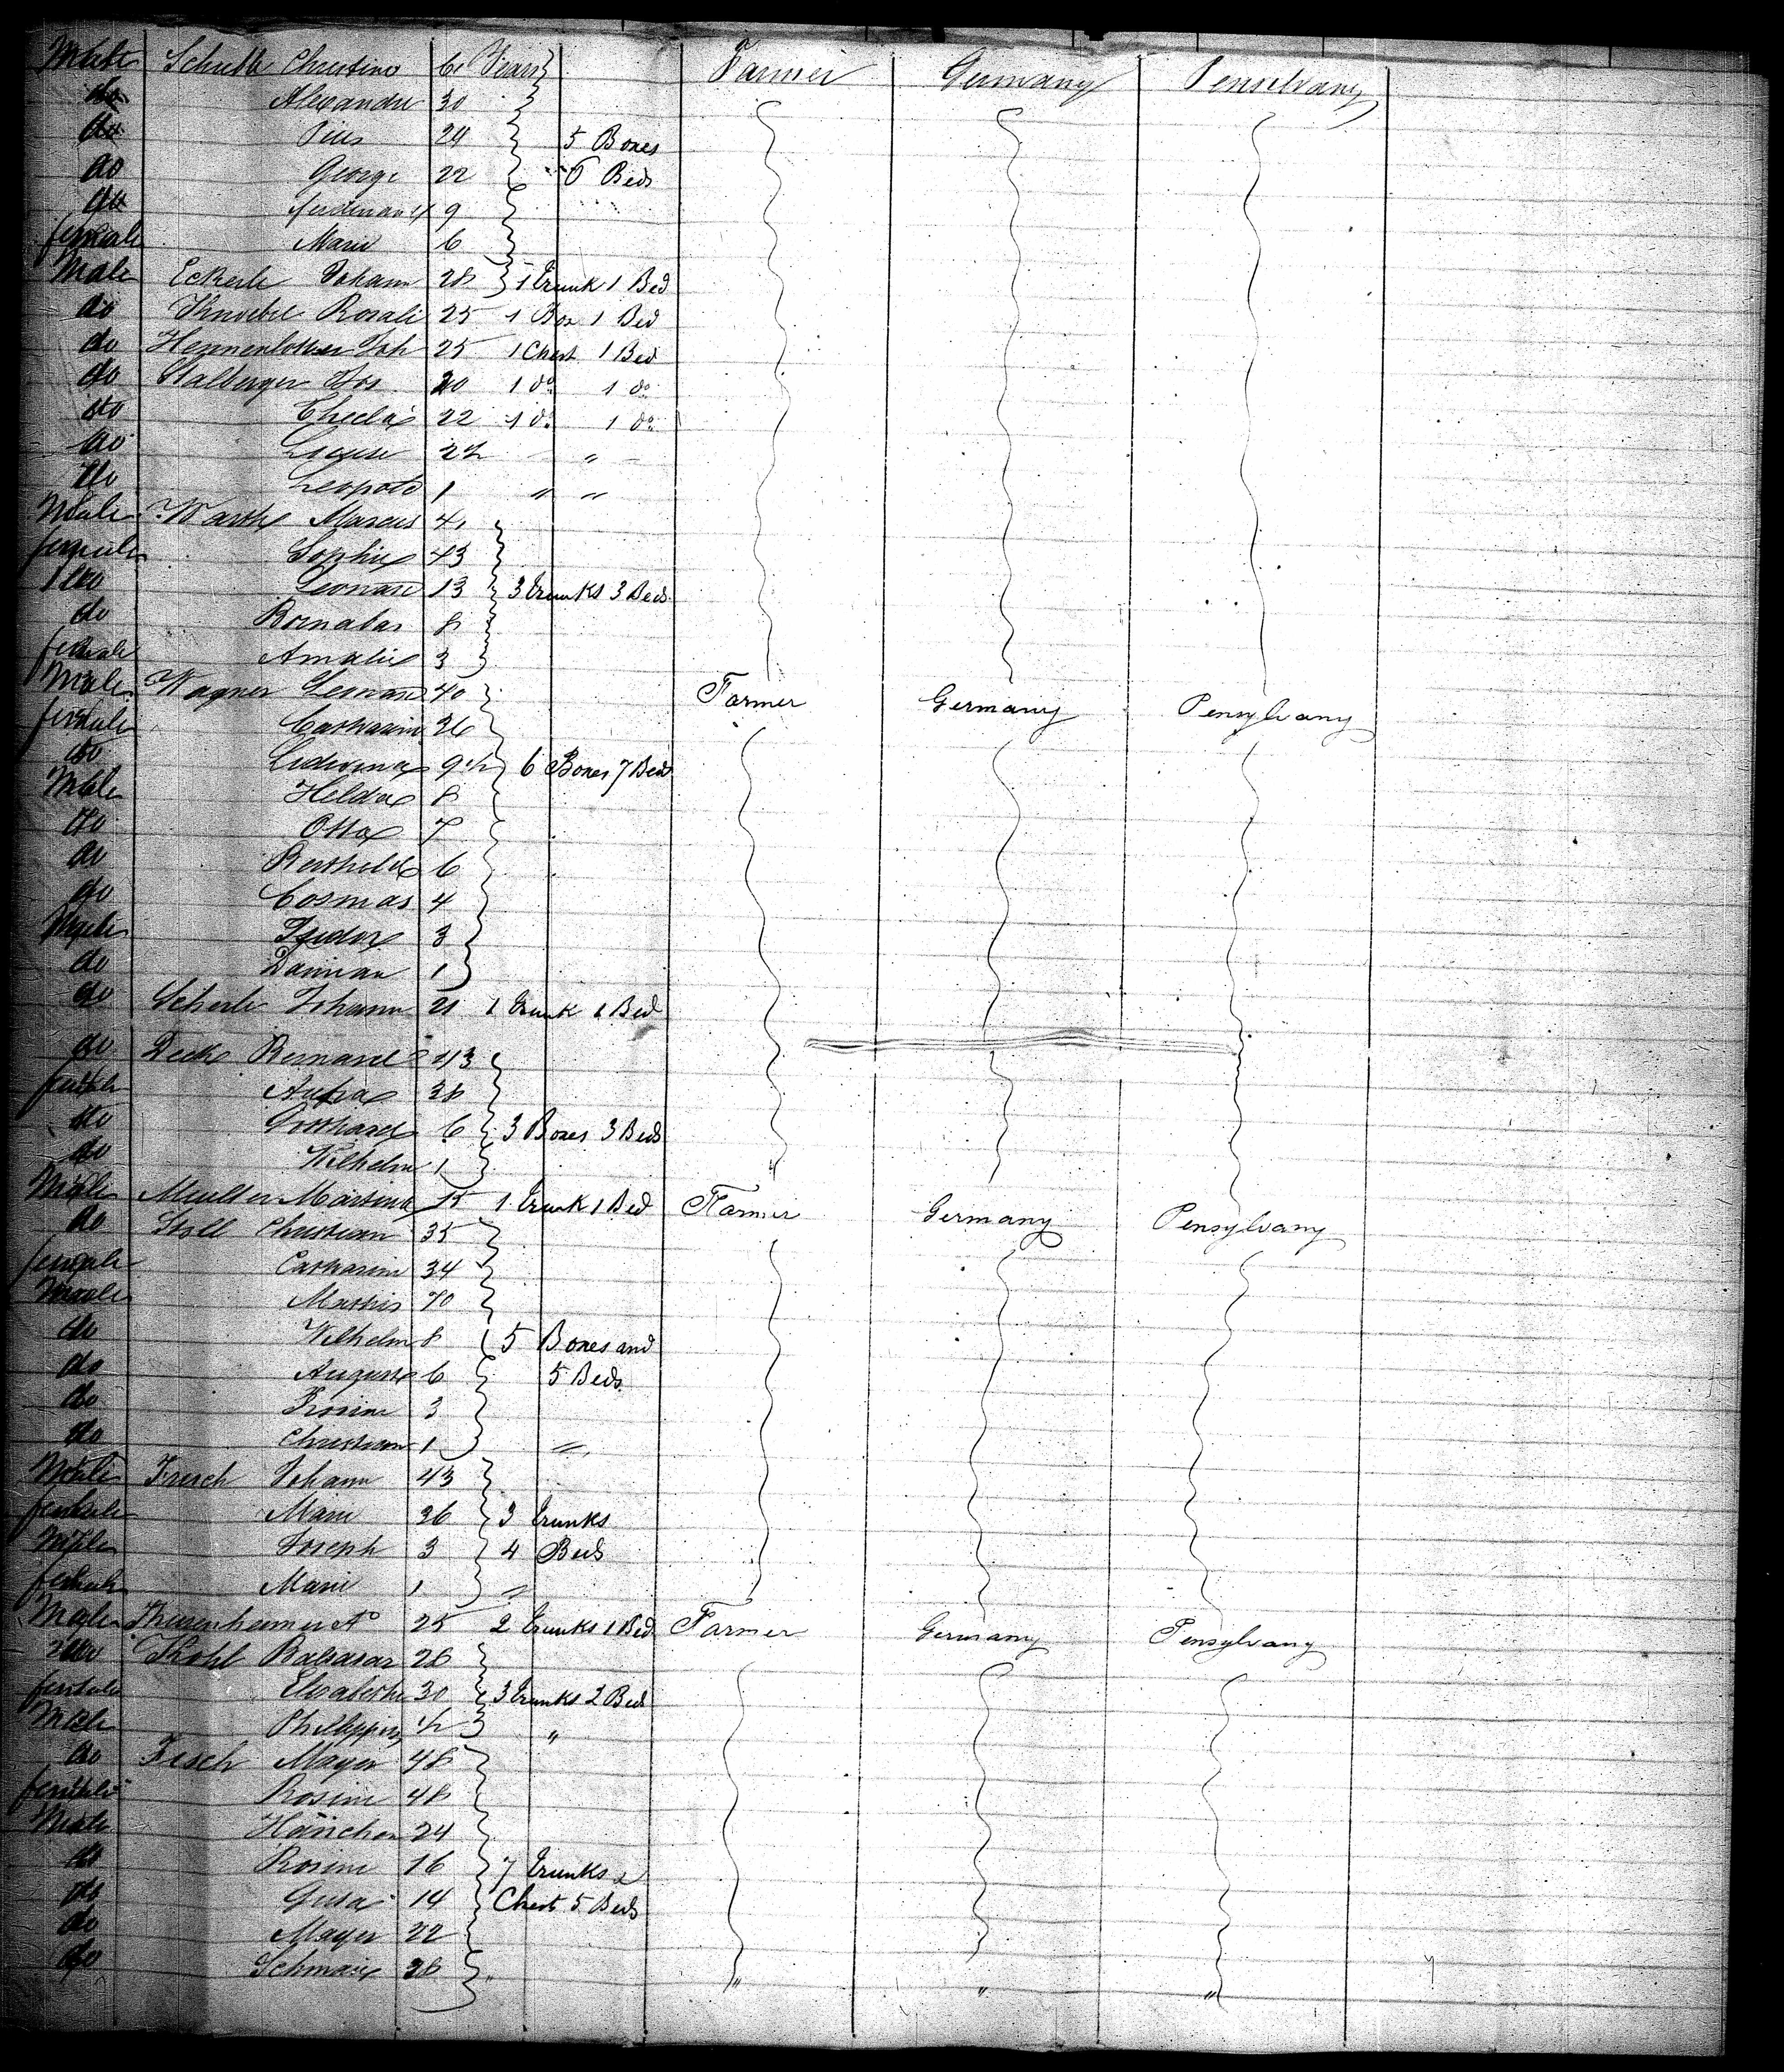 Male Schuth Christine 61 Years Farmer Germany Penselvany
do Alexandre 30
do Pius 24 5 Boxes
do George 22 6 Beds
do ferdinand 9
female Marie 6
Male Eckerle Johann 28 1 Trunk 1 Bed
do Rosali 25 1 Box 1 Bed
do Hennenlotter Joh 25 1 Chest 1 Bed
do Jos 20 1 do 1 do
do Checla 22 1 do 1 do
do Louise 22 "
do Leopold 1 " "
Male Warth Marcus 41
female Sophie 43
do Leonard 13 3 Trunks 3 Beds
do Bornabas 8
female Amalie 3
Male Wagner Leonard 40 Farmer Germany Pensylvany
female Catharine 36
do 9 6 Boxes 7 Beds
Male Helda 8
do Otto 7
do Berthold 6
do Cosmas 4
Male Isidor 3
do Damian 1
do Scherle Johann 21 1 Trunk 1 Bed
do Deck Bernard 43
female 38
do Gotthard 6 3 Boxes 3 Beds
do Wilhelm 1
Male Mueller Martin 15 1 Trunk 1 Bed Farmer Germany Pensylvany
do Stoll Christian 35
female Catharine 34
Male Mathis 70
do Wilhelm 8 5 Boxes and
do August 6 5 Beds
do Rosine 3
do Christian 1 "
Male Fresch Johann 43
female Marie 36 3 Trunks
Male Joseph 3 4 Beds
female Marie 1 "
Male 25 2 Trunks 1 Bed Farmer Germany Pensylvany
do Kohl Balthasar 28
female Elisabeth 30 3 Trunks 2 Beds
Male Philippine ½ "
do Fisch Mayer 48
female Rosine 48
Male Hänchen 24
do Rosine 16 7 Trunks &
do 14 Chest 5 Beds
do Mayer 22
do 28 " " " "